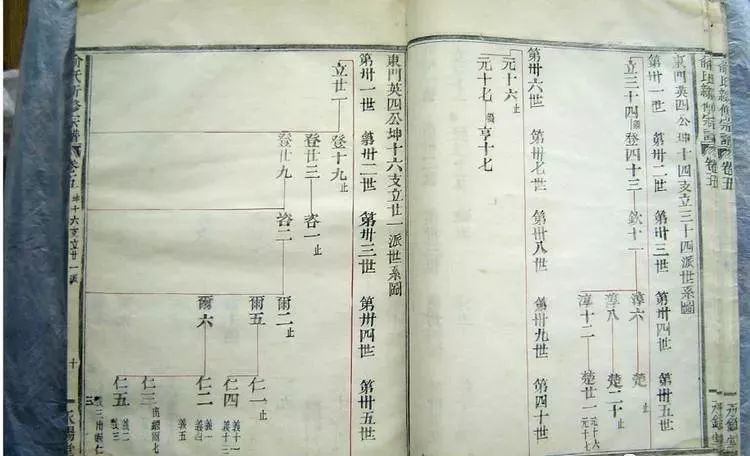 俞氏續修宗譜 卷五
東門英四公坤十四支立三十四派世系圖
第卅一世 第卅二世 第卅三世 第卅四世 第卅五世
立三十四 登四十三 欽十一 淳六 楚 止
淳八 楚二十 止
淳十二 楚廿一 元十六 元十七
第卅六世 第卅七世 第卅八世 第卅九世 第四十世
元十六 止
元十七 亨十七
東門英四公坤十六支立廿一派世系圖
第卅一世 第卅二世 第卅三世 第卅四世 第卅五世
立廿一 登十九 止
登廿三 咨一 止
登廿九 咨二 爾二 止
爾五 仁一 止
仁四 義十一 義十三
爾六 仁二 義四 義五
仁三 出繼爾七
仁五 義二 義三
卷五 坤十六支立廿一派
十